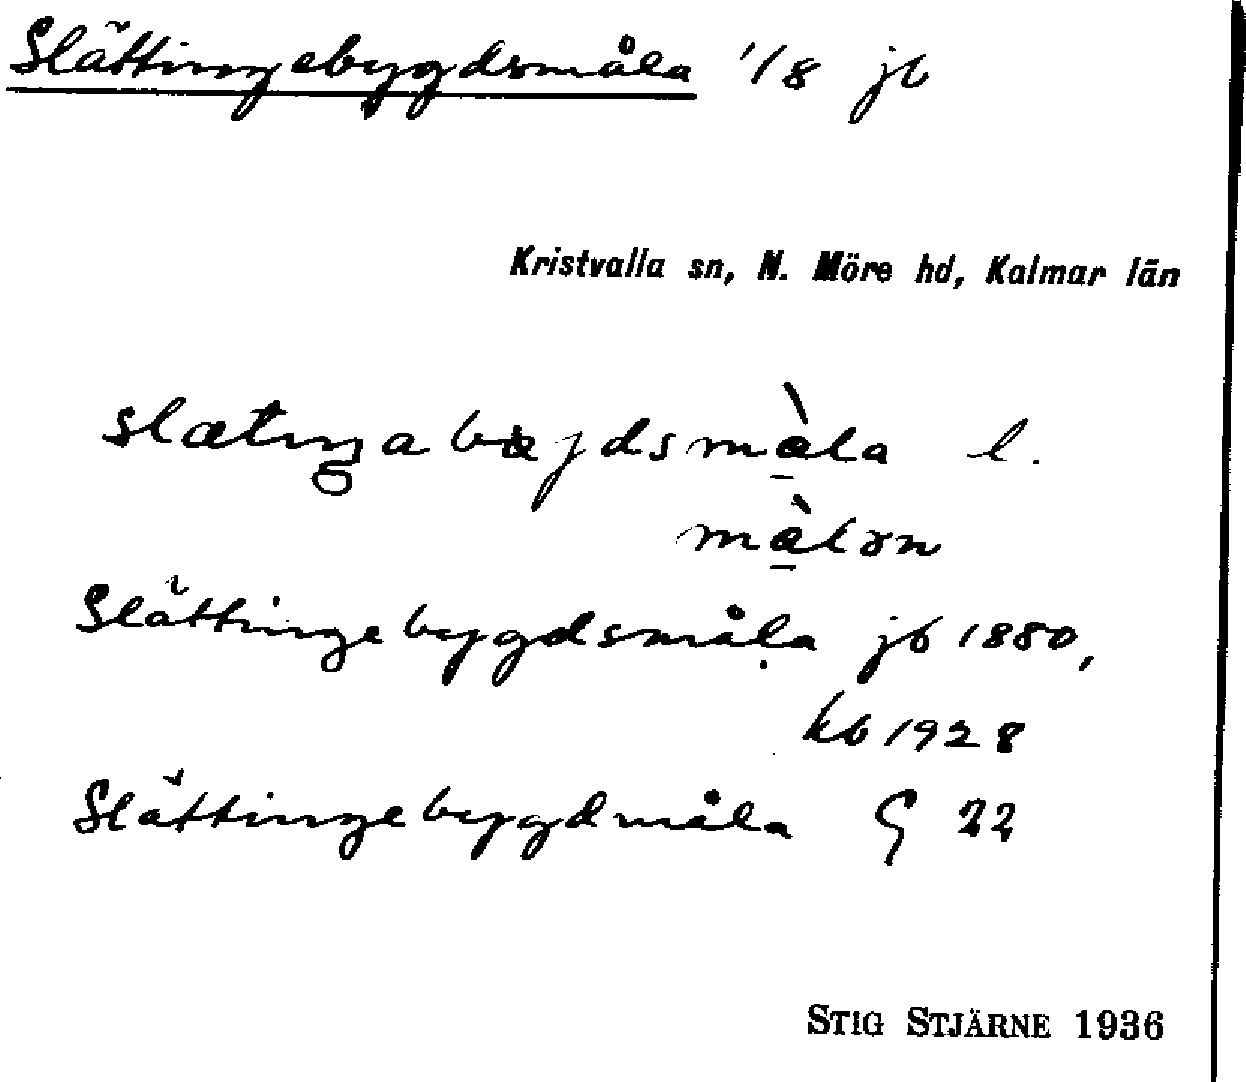 Slättingebygdsmåla 1/8 jb
Kristvalla sn, N. Möre hd, Kalmar län
l.
Slättingebygdsmåla jb 1880,
kb 1928
Slättingebygdmåla G 22
STIG STJÄRNE 1936